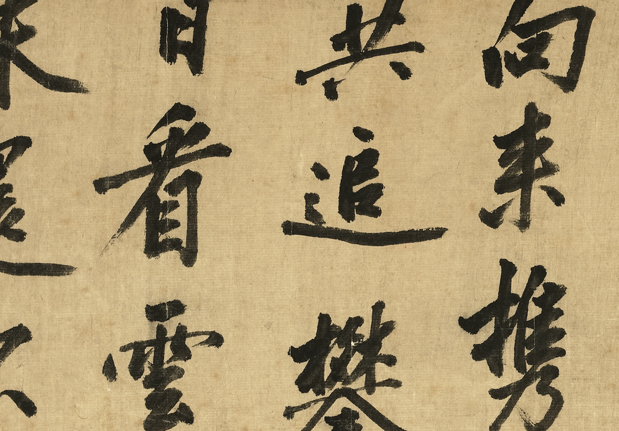 向来携
共追攀
日看雲
還